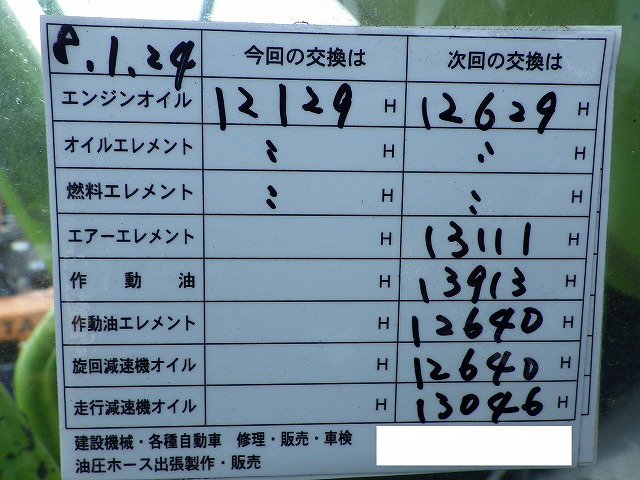 8.1.24 今回の交換は 次回の交換は
エンジンオイル 12129 H 12629 H
オイルエレメント 〃 H 〃 H
燃料エレメント 〃 H 〃 H
エアーエレメント H 13111 H
作動油 H 13913 H
作動油エレメント H 12640 H
旋回減速機オイル H 12640 H
走行減速機オイル H 13046 H
建設機械・各種自動車 修理・販売・車検
油圧ホース出張製作・販売